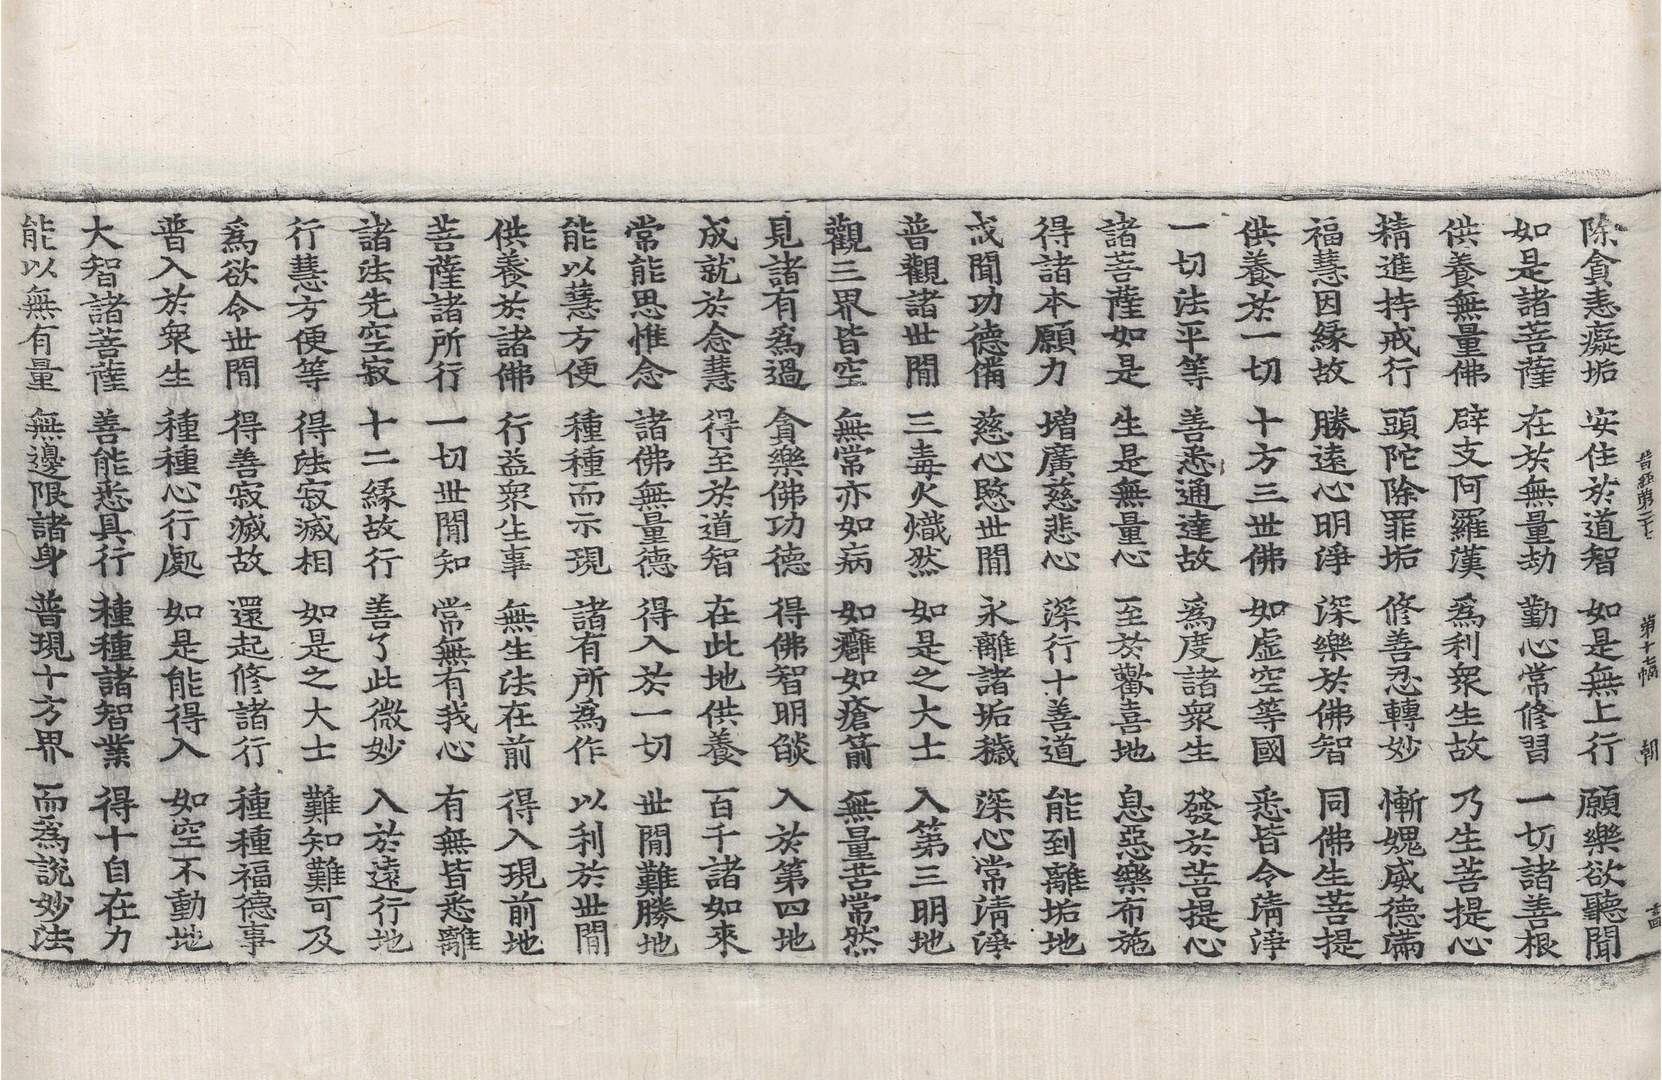 晉經第二十七 第十七幅 朝
除貪恚癡垢 安住於道智 如是無上行 願樂欲聽聞
如是諸菩薩 在於無量劫 勤心常修習 一切諸善根
供養無量佛 辟支阿羅漢 為利衆生故 乃生菩提心
精進持戒行 頭陀除罪垢 修善忍轉妙 慚媿威德滿
福慧因緣故 勝遠心明淨 深樂於佛智 同佛生菩提
供養於一切 十方三世佛 如虛空等國 悉皆令清淨
一切法平等 善悉通達故 為度諸衆生 發於菩提心
諸菩薩如是 生是無量心 至於歡喜地 息惡樂布施
得諸本願力 增廣慈悲心 深行十善道 能到離垢地
戒聞功德備 慈心愍世閒 永離諸垢穢 深心常清淨
普觀諸世閒 三毒火熾然 如是之大士 入第三明地
觀三界皆空 無常亦如病 如癰如瘡箭 無量苦常然
見諸有為過 貪樂佛功德 得佛智明焰 入於第四地
成就於念慧 得至於道智 在此地供養 百千諸如來
常能思惟念 諸佛無量德 得入於一切 世閒難勝地
能以慧方便 種種而示現 諸有所為作 以利於世閒
供養於諸佛 行益衆生事 無生法在前 得入現前地
菩薩諸所行 一切世閒知 常無有我心 有無皆悉離
諸法先空寂 十二緣故行 善了此微妙 入於遠行地
行慧方便等 得法寂滅相 如是之大士 難知難可及
為欲令世閒 得善寂滅故 還起修諸行 種種福德事
普入於衆生 種種心行處 如是能得入 如空不動地
大智諸菩薩 善能悉具行 種種諸智業 得十自在力
能以無有量 無邊限諸身 普現十方界 而為說妙法